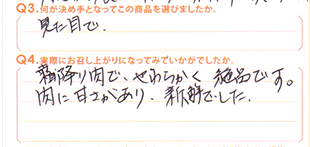 Q3.何が決め手となってこの商品を選びましたか。
見た目で.
Q4.実際にお召し上がりになってみていかがでしたか。
霜降り肉で、やわらかく絶品です。
肉に甘さがあり、新鮮でした.